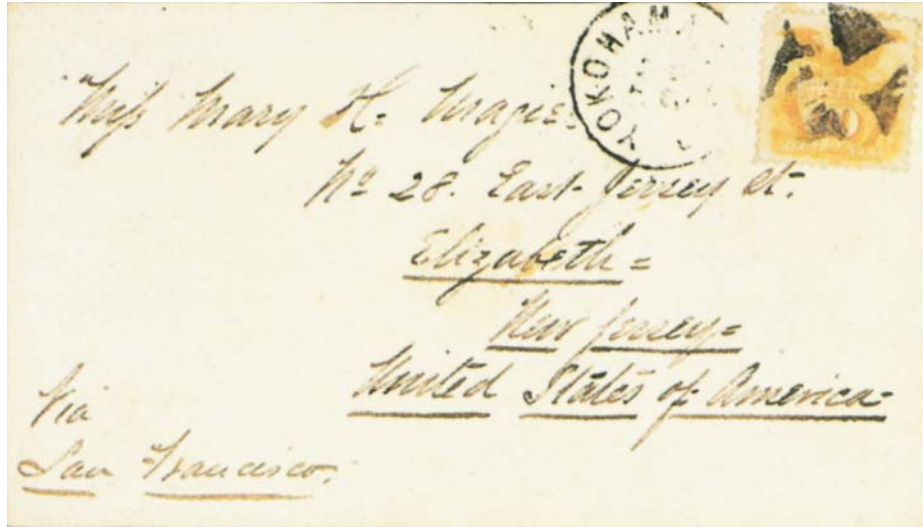 YOKOHAMA
Miss Mary H. Magie.
No 28. East Jersey St.
Elizabeth =
New Jersey =
United States of America
Via
San Francisco.